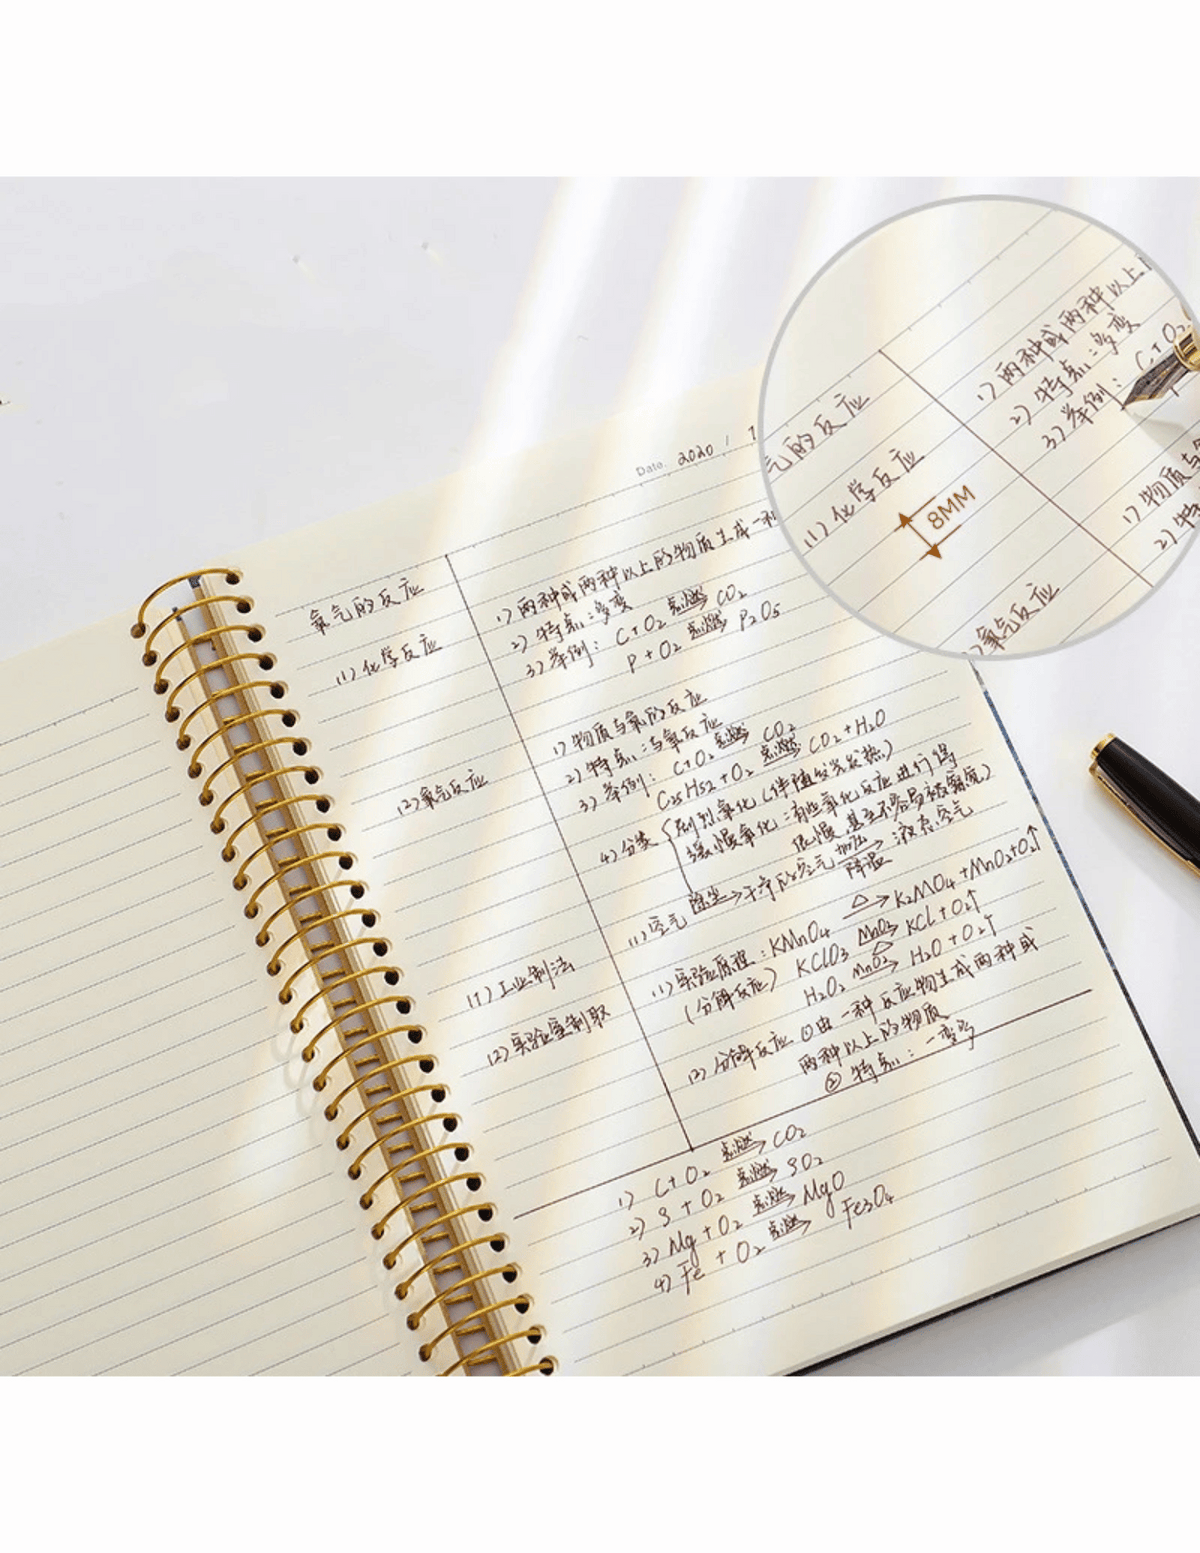 Date. 2020 / 1
氧气的反应
(1) 化学反应
1) 两种或两种以上的物质生成一种
2) 特点:多变
3) 举例: C+O₂ 点燃→ CO₂
P+O₂ 点燃→ P₂O₅
(2) 氧气反应
1) 物质与氧的反应
2) 特点:与氧反应
3) 举例: C+O₂ 点燃→ CO₂
C₂₅H₅₂+O₂ 点燃→ CO₂+H₂O
4) 分类 { 剧烈氧化 (伴随发光发热)
缓慢氧化:有些氧化反应进行得
很慢,甚至不容易被察觉)
(1) 工业制法
(1) 空气 除尘→ 干净的空气 加压→降温 液态空气
(2) 实验室制取
(1) 实验原理: KMnO₄ △→ K₂MO₄+MnO₂+O₂↑
(分解反应) KClO₃ MnO₂→△ KCl+O₂↑
H₂O₂ MnO₂→ H₂O+O₂↑
(2) 分解反应 ①由一种反应物生成两种或
两种以上的物质
② 特点:一变多
1) C+O₂ 点燃→ CO₂
2) S+O₂ 点燃→ SO₂
3) Mg+O₂ 点燃→ MgO
4) Fe+O₂ 点燃→ Fe₃O₄
气的反应
(1) 化学反应
8MM
1) 两种或两种以上
2) 特点:多变
3) 举例: C+O₂
1) 物质与
2) 特
氧气反应